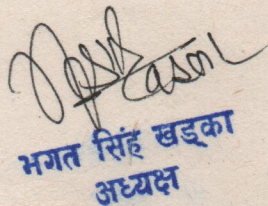 भगत सिंह खड्का
अध्यक्ष